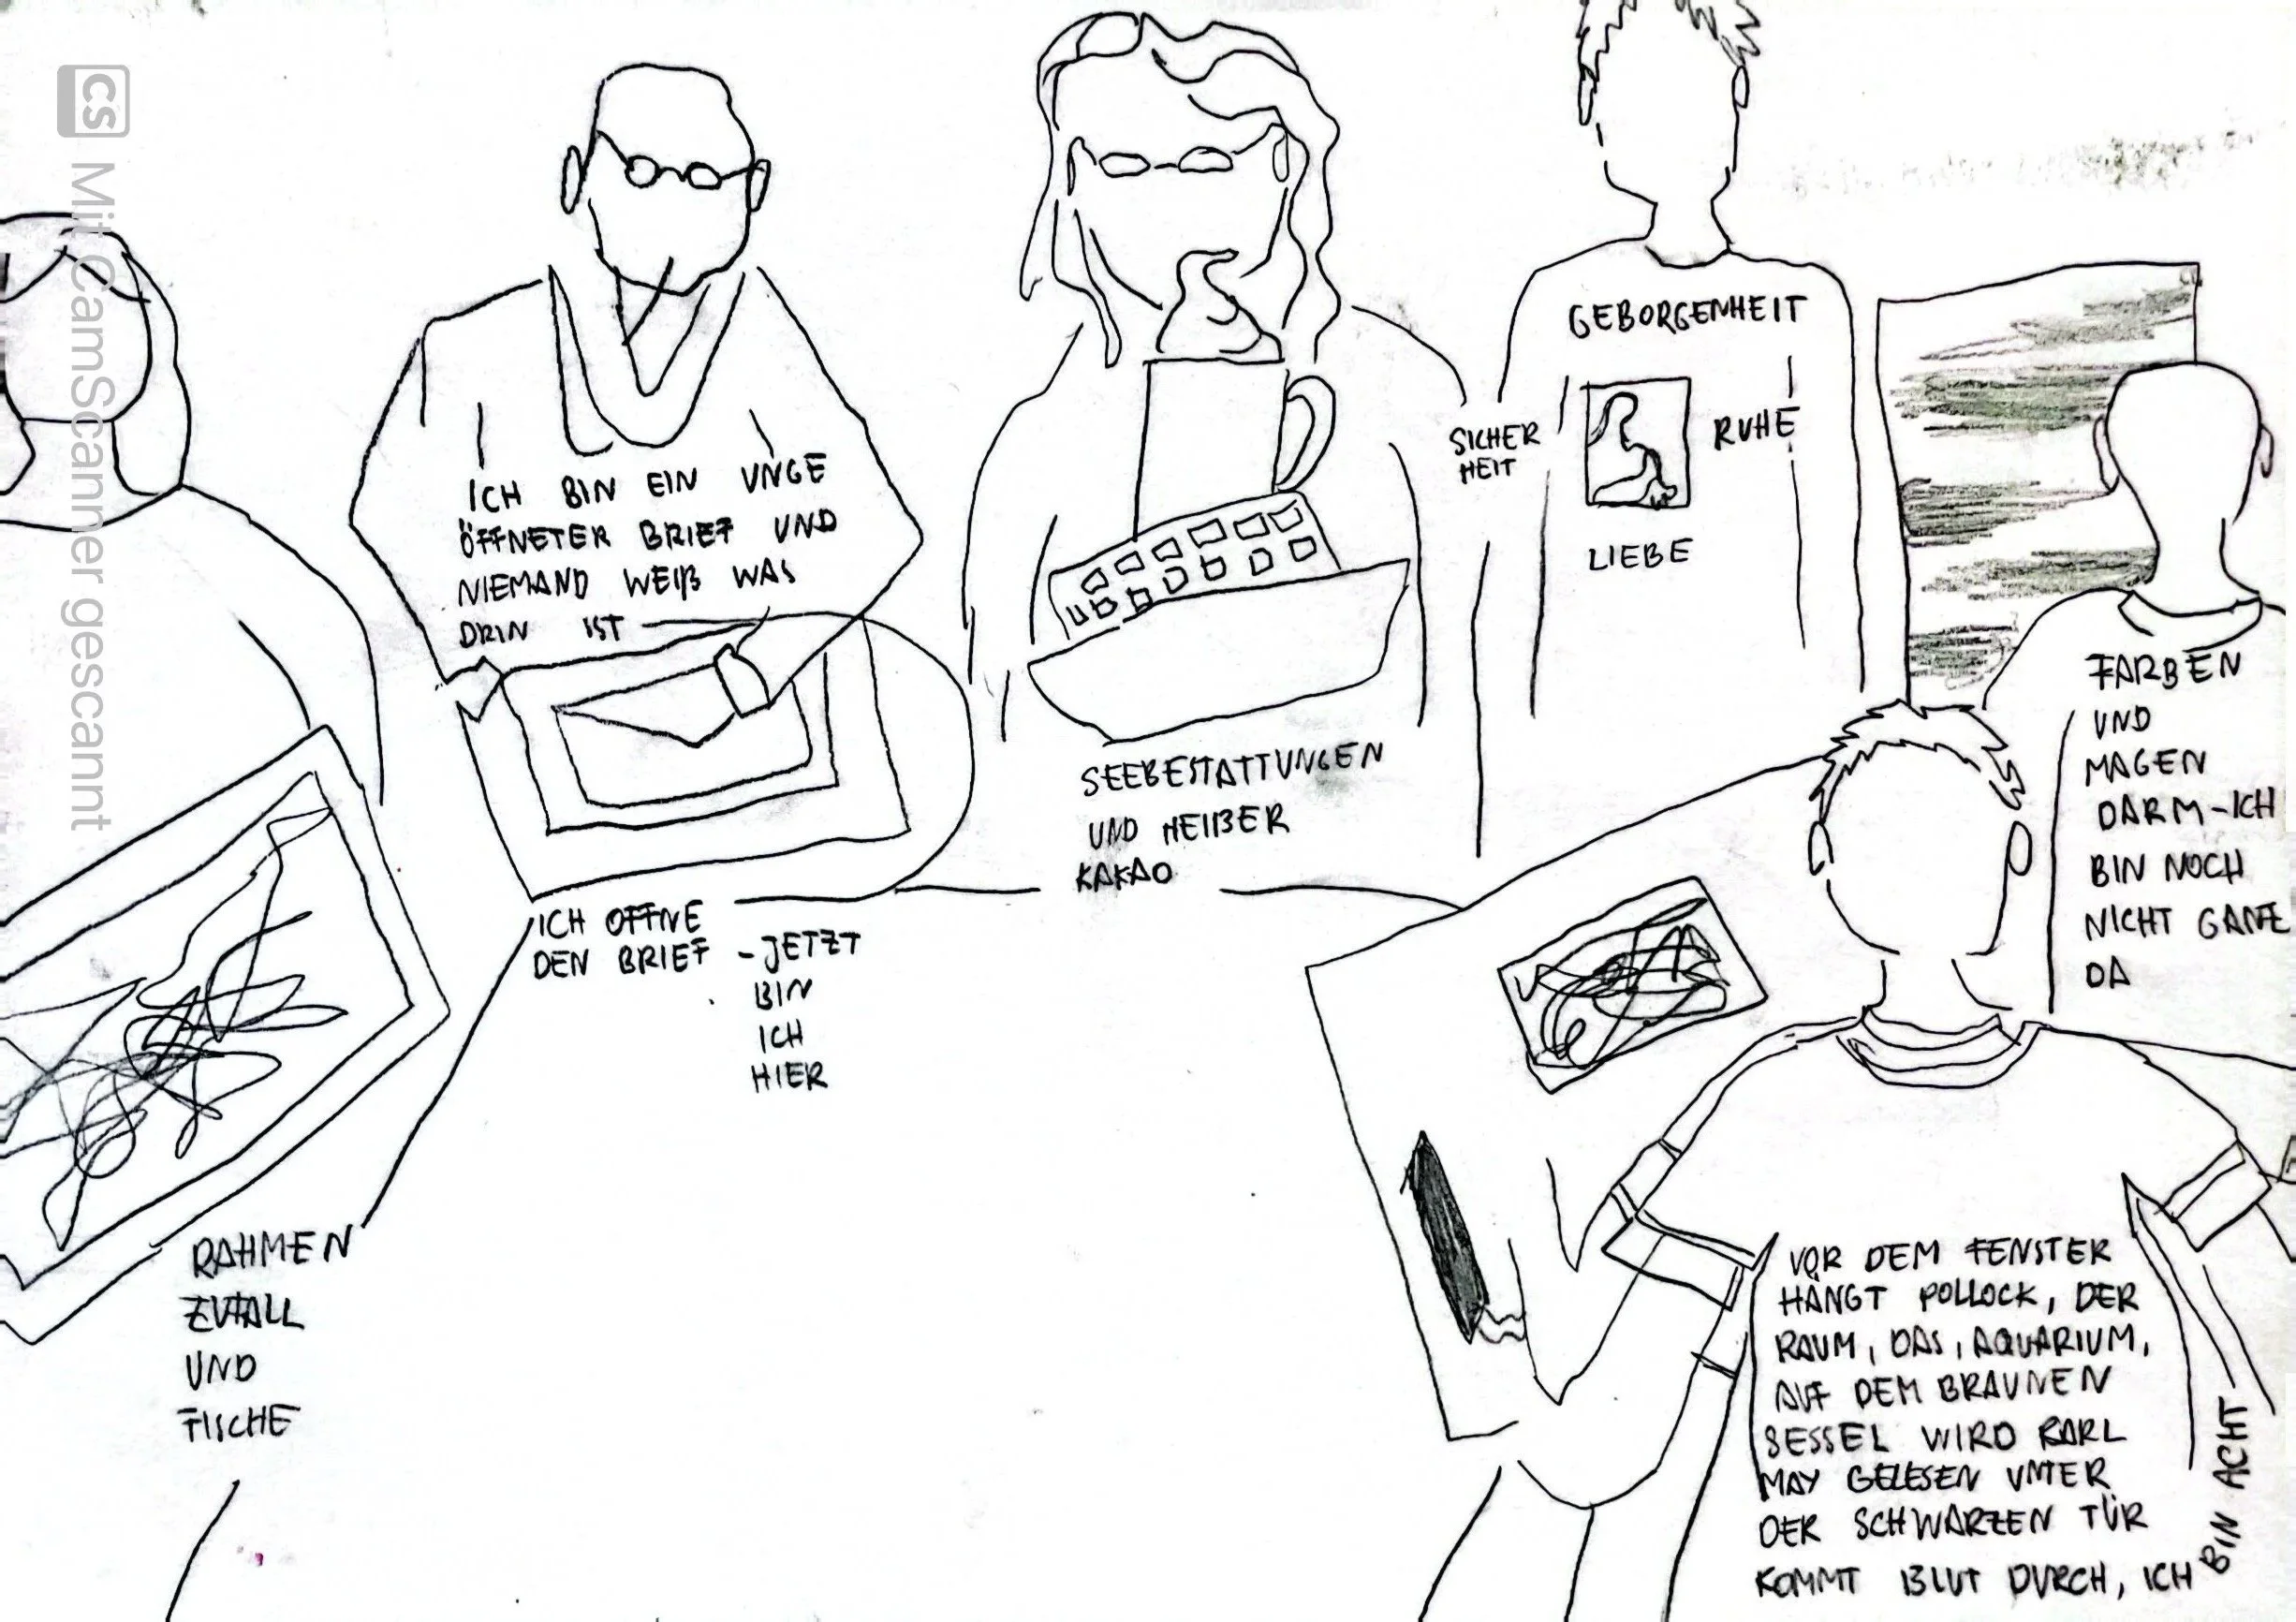 CS Mit CamScanner gescannt
ICH BIN EIN UNGE
ÖFFNETER BRIEF UND
NIEMAND WEIß WAS
DRIN IST
ICH ÖFFNE
DEN BRIEF - JETZT
BIN
ICH
HIER
RAHMEN
ZUFALL
UND
FISCHE
SEEBESTATTUNGEN
UND HEIßER
KAKAO
GEBORGENHEIT
SICHER
HEIT
RUHE
LIEBE
FARBEN
UND
MAGEN
DARM-ICH
BIN NOCH
NICHT GANZ
DA
VOR DEM FENSTER
HÄNGT POLLOCK, DER
RAUM, DAS, AQUARIUM,
AUF DEM BRAUNEN
SESSEL WIRD KARL
MAY GELESEN UNTER
DER SCHWARZEN TÜR
KOMMT BLUT DURCH, ICH
BIN ACHT